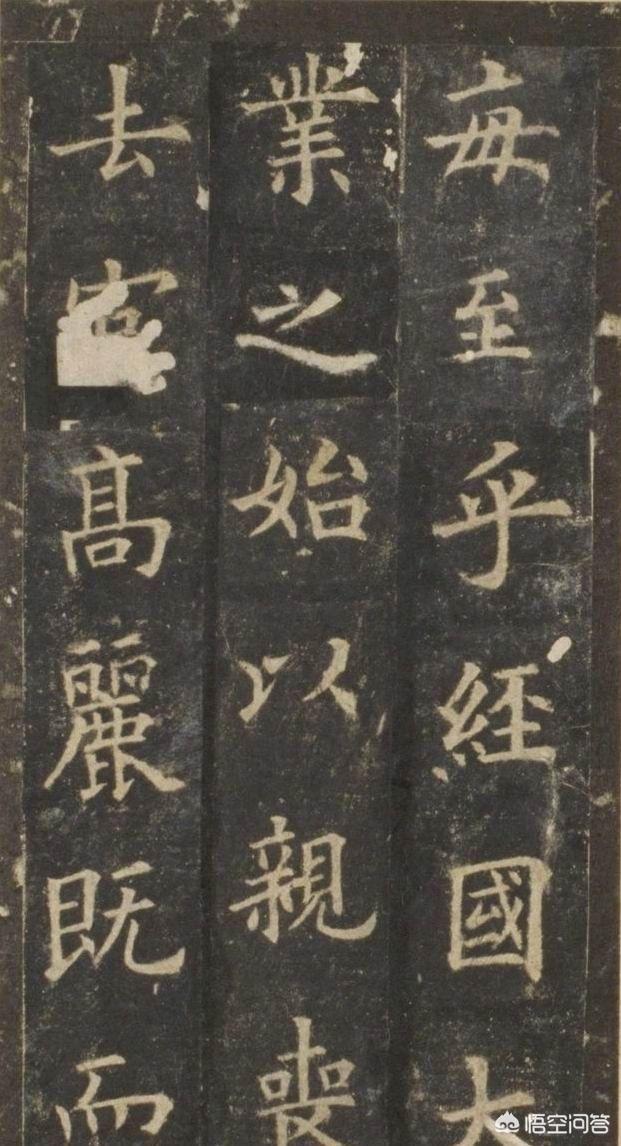 每至乎經國大
業之始以親喪
去高麗既而
悟空问答